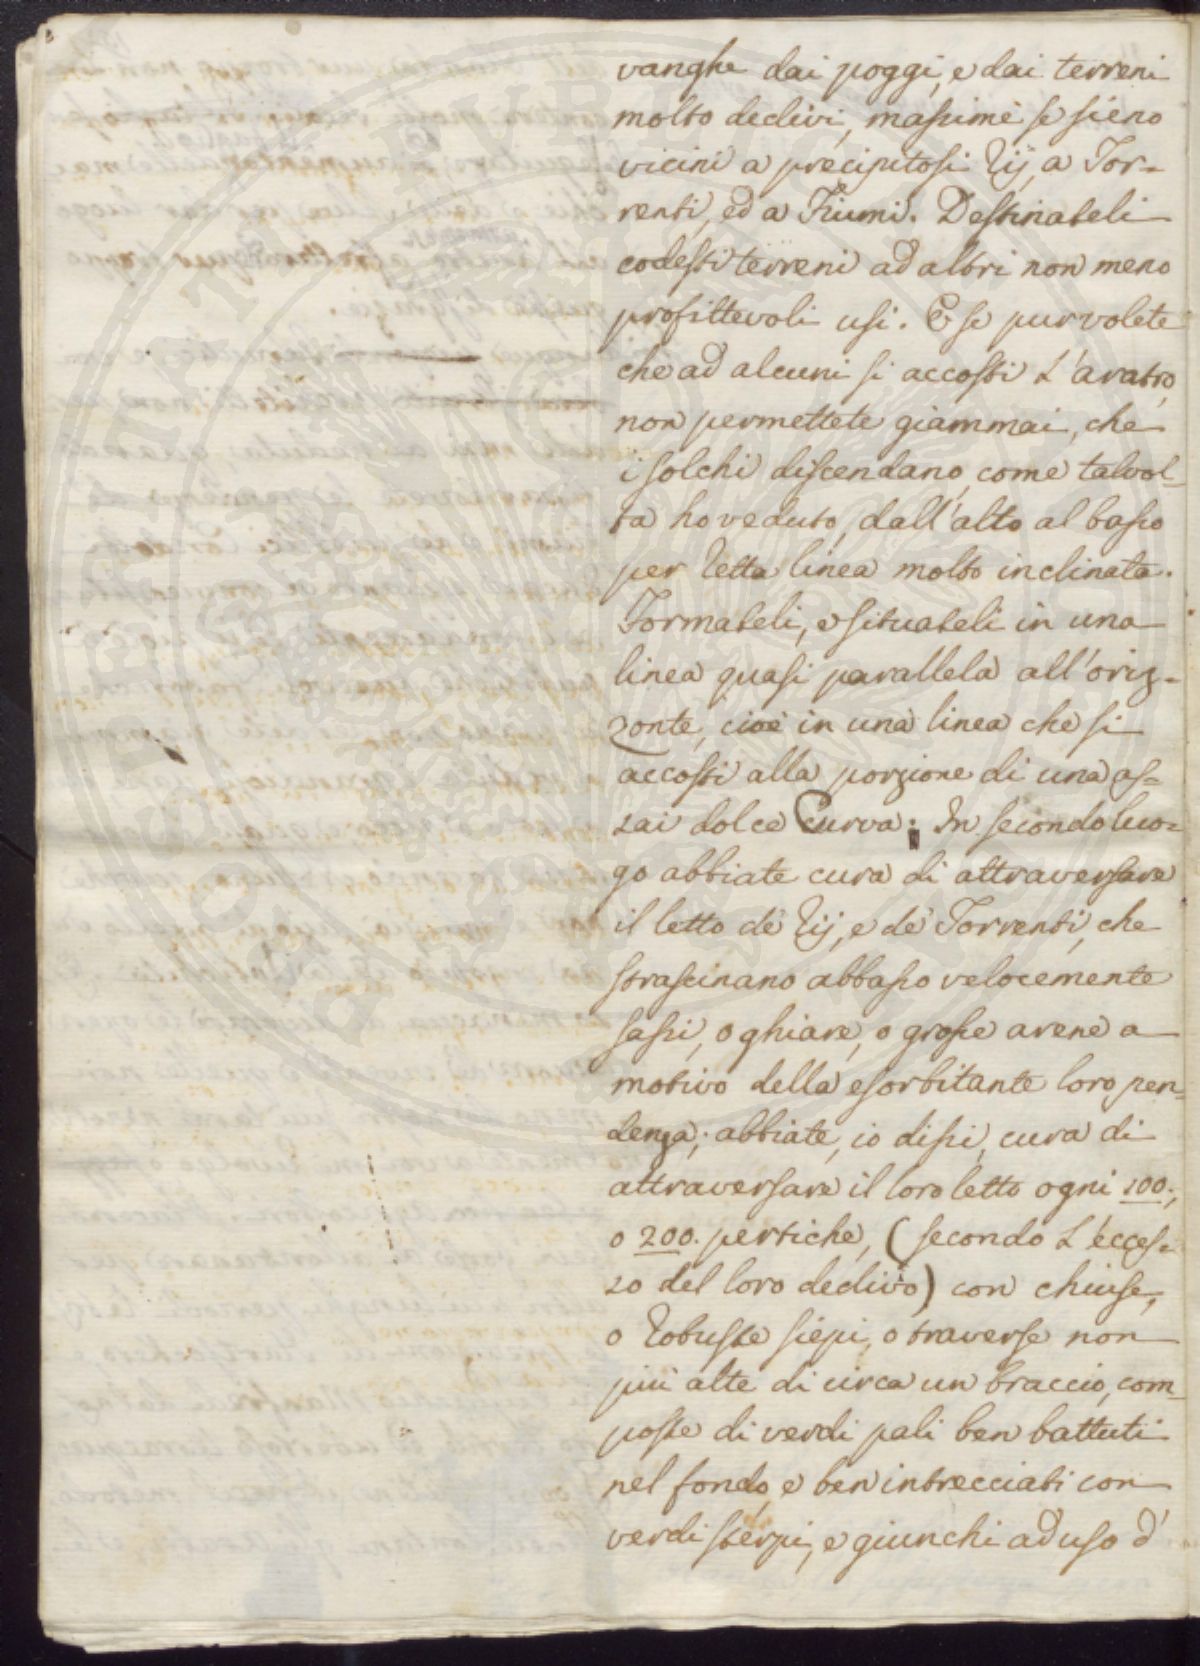 vanghe dai poggi, e dai terreni
molto declivi, massime se sieno
vicini a precipitosi Rij, a Tor-
renti, ed a Fiumi. Destinateli
codesti terreni ad altri non meno
profittevoli usi. E se pur volete
che ad alcuni si accosti l'aratro,
non permettete giammai, che
i solchi discendano, come talvol-
ta ho veduto, dall'alto al basso
per retta linea molto inclinata.
Formateli, e situateli in una
linea quasi parallela all'oriz-
zonte, cioè in una linea che si
accosti alla porzione di una as-
sai dolce Curva: In secondo luo-
go abbiate cura di attraversare
il letto de' Rij, e de' Torrenti, che
strascinano abbasso velocemente
sassi, o ghiare, o grosse arene a
motivo della esorbitante loro pen-
denza; abbiate, io dissi, cura di
attraversare il loro letto ogni 100.,
o 200. pertiche, (secondo l'ecces-
so del loro declivio) con chiuse,
o robuste siepi, o traverse non
più alte di circa un braccio, com-
poste di verdi pali ben battuti
nel fondo, e ben intrecciati con
verdi sterpi, e giunchi ad uso d'